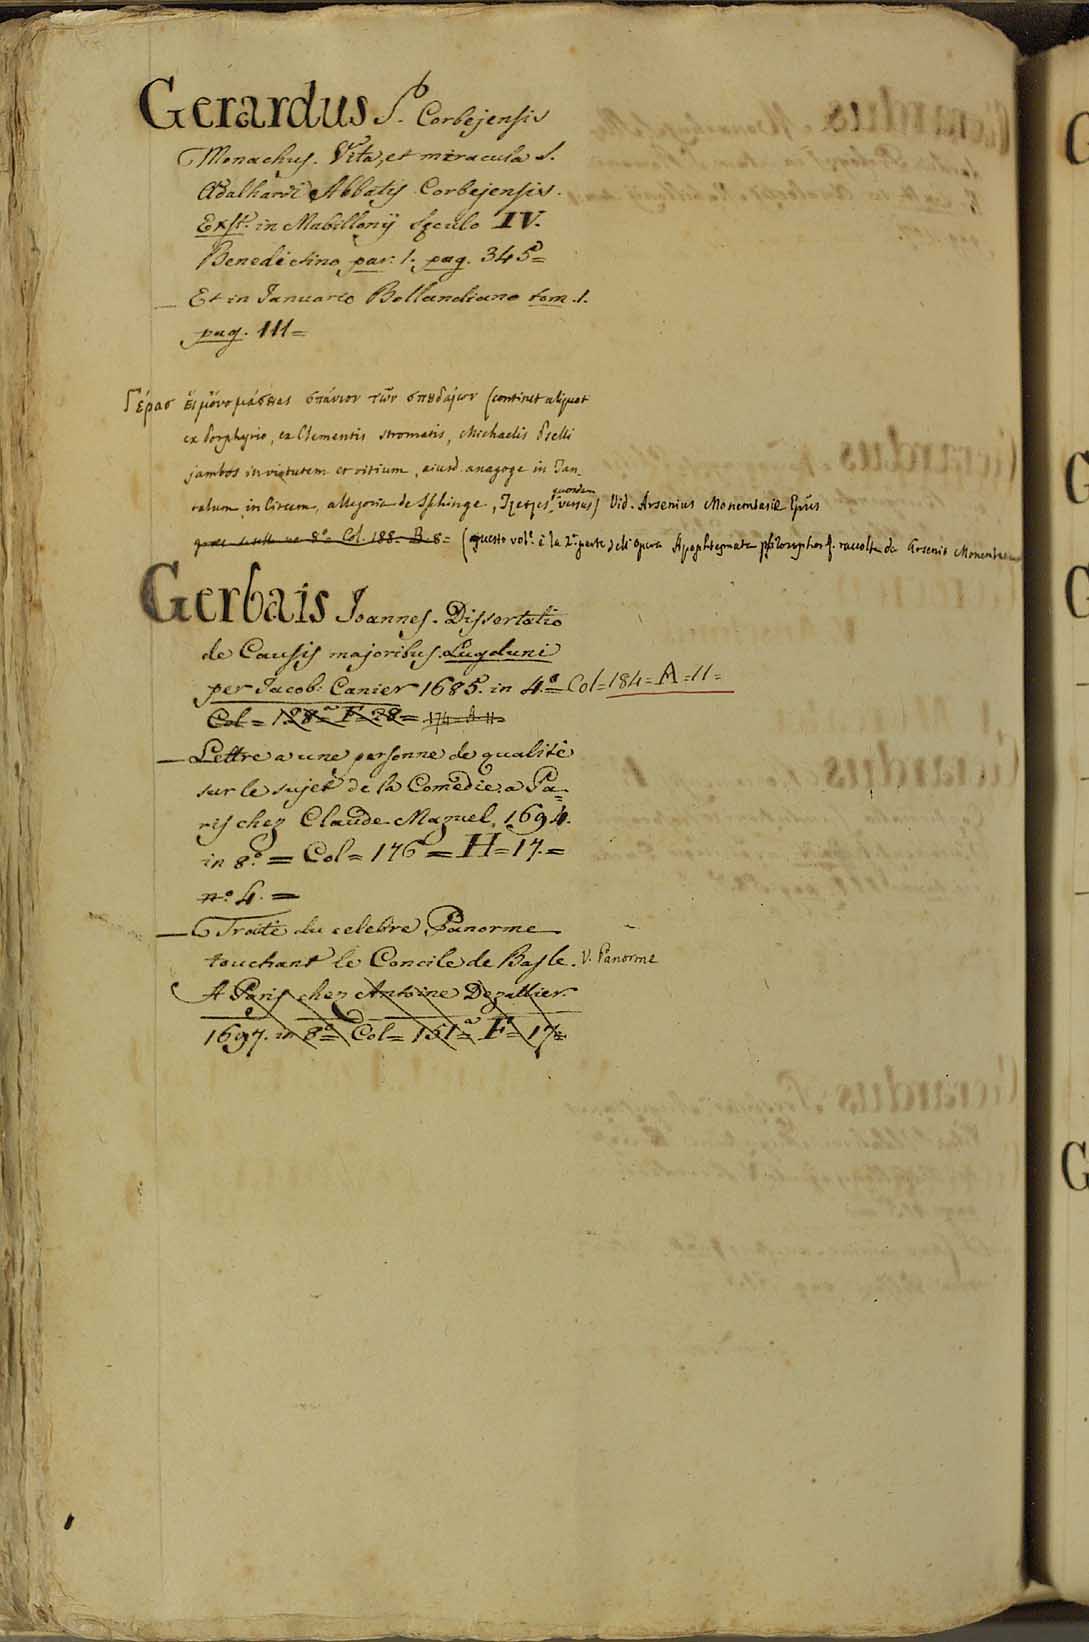 Gerardus S. Corbejensis
Monachus. Vita, et miracula S.
Adalhardi Abbatis Corbejensis.
Exst. in Mabillonij Seculo IV.
Benedictino par. 1. pag. 345=
Et in Januario Bollandiano tom. 1.
pag. 111=
Γέρας σπάνιον τῶν σπουδαίων (continet aliquot
ex Porphyrio, ex Clementis stromatis, Michaelis Pselli
jambos in virtutem et vitium, eiusd. anagoge in Tan-
talum, in Circem, allegoria de Sphinge, Tzetzes quosdam versus) Vid. Arsenius Monembasiæ Epūs
8° Col. 188. B. 8= (questo vol. è la 2.ª parte dell opera Apophtegmata philosophor. raccolta da Arsenio
Gerbais Joannes. Dissertatio
de Causis majoribus. Lugduni
per Jacob. Canier 1685. in 4.º= Col=184=A=11=
Col= 128= F=28= 174=A 11
— Lettre a une personne de qualitè
sur le sujet de la Comedie. a Pa=
ris chez Claude Mazuel. 1694.
in 8.º = Col= 176= H=17.=
n.º 4. =
— Traitè du celebre Panorme
touchant le Concile de Basle. V. Panorme
A Paris chez Antoine Dezallier.
1697. in 8.º= Col= 151= F= 17=